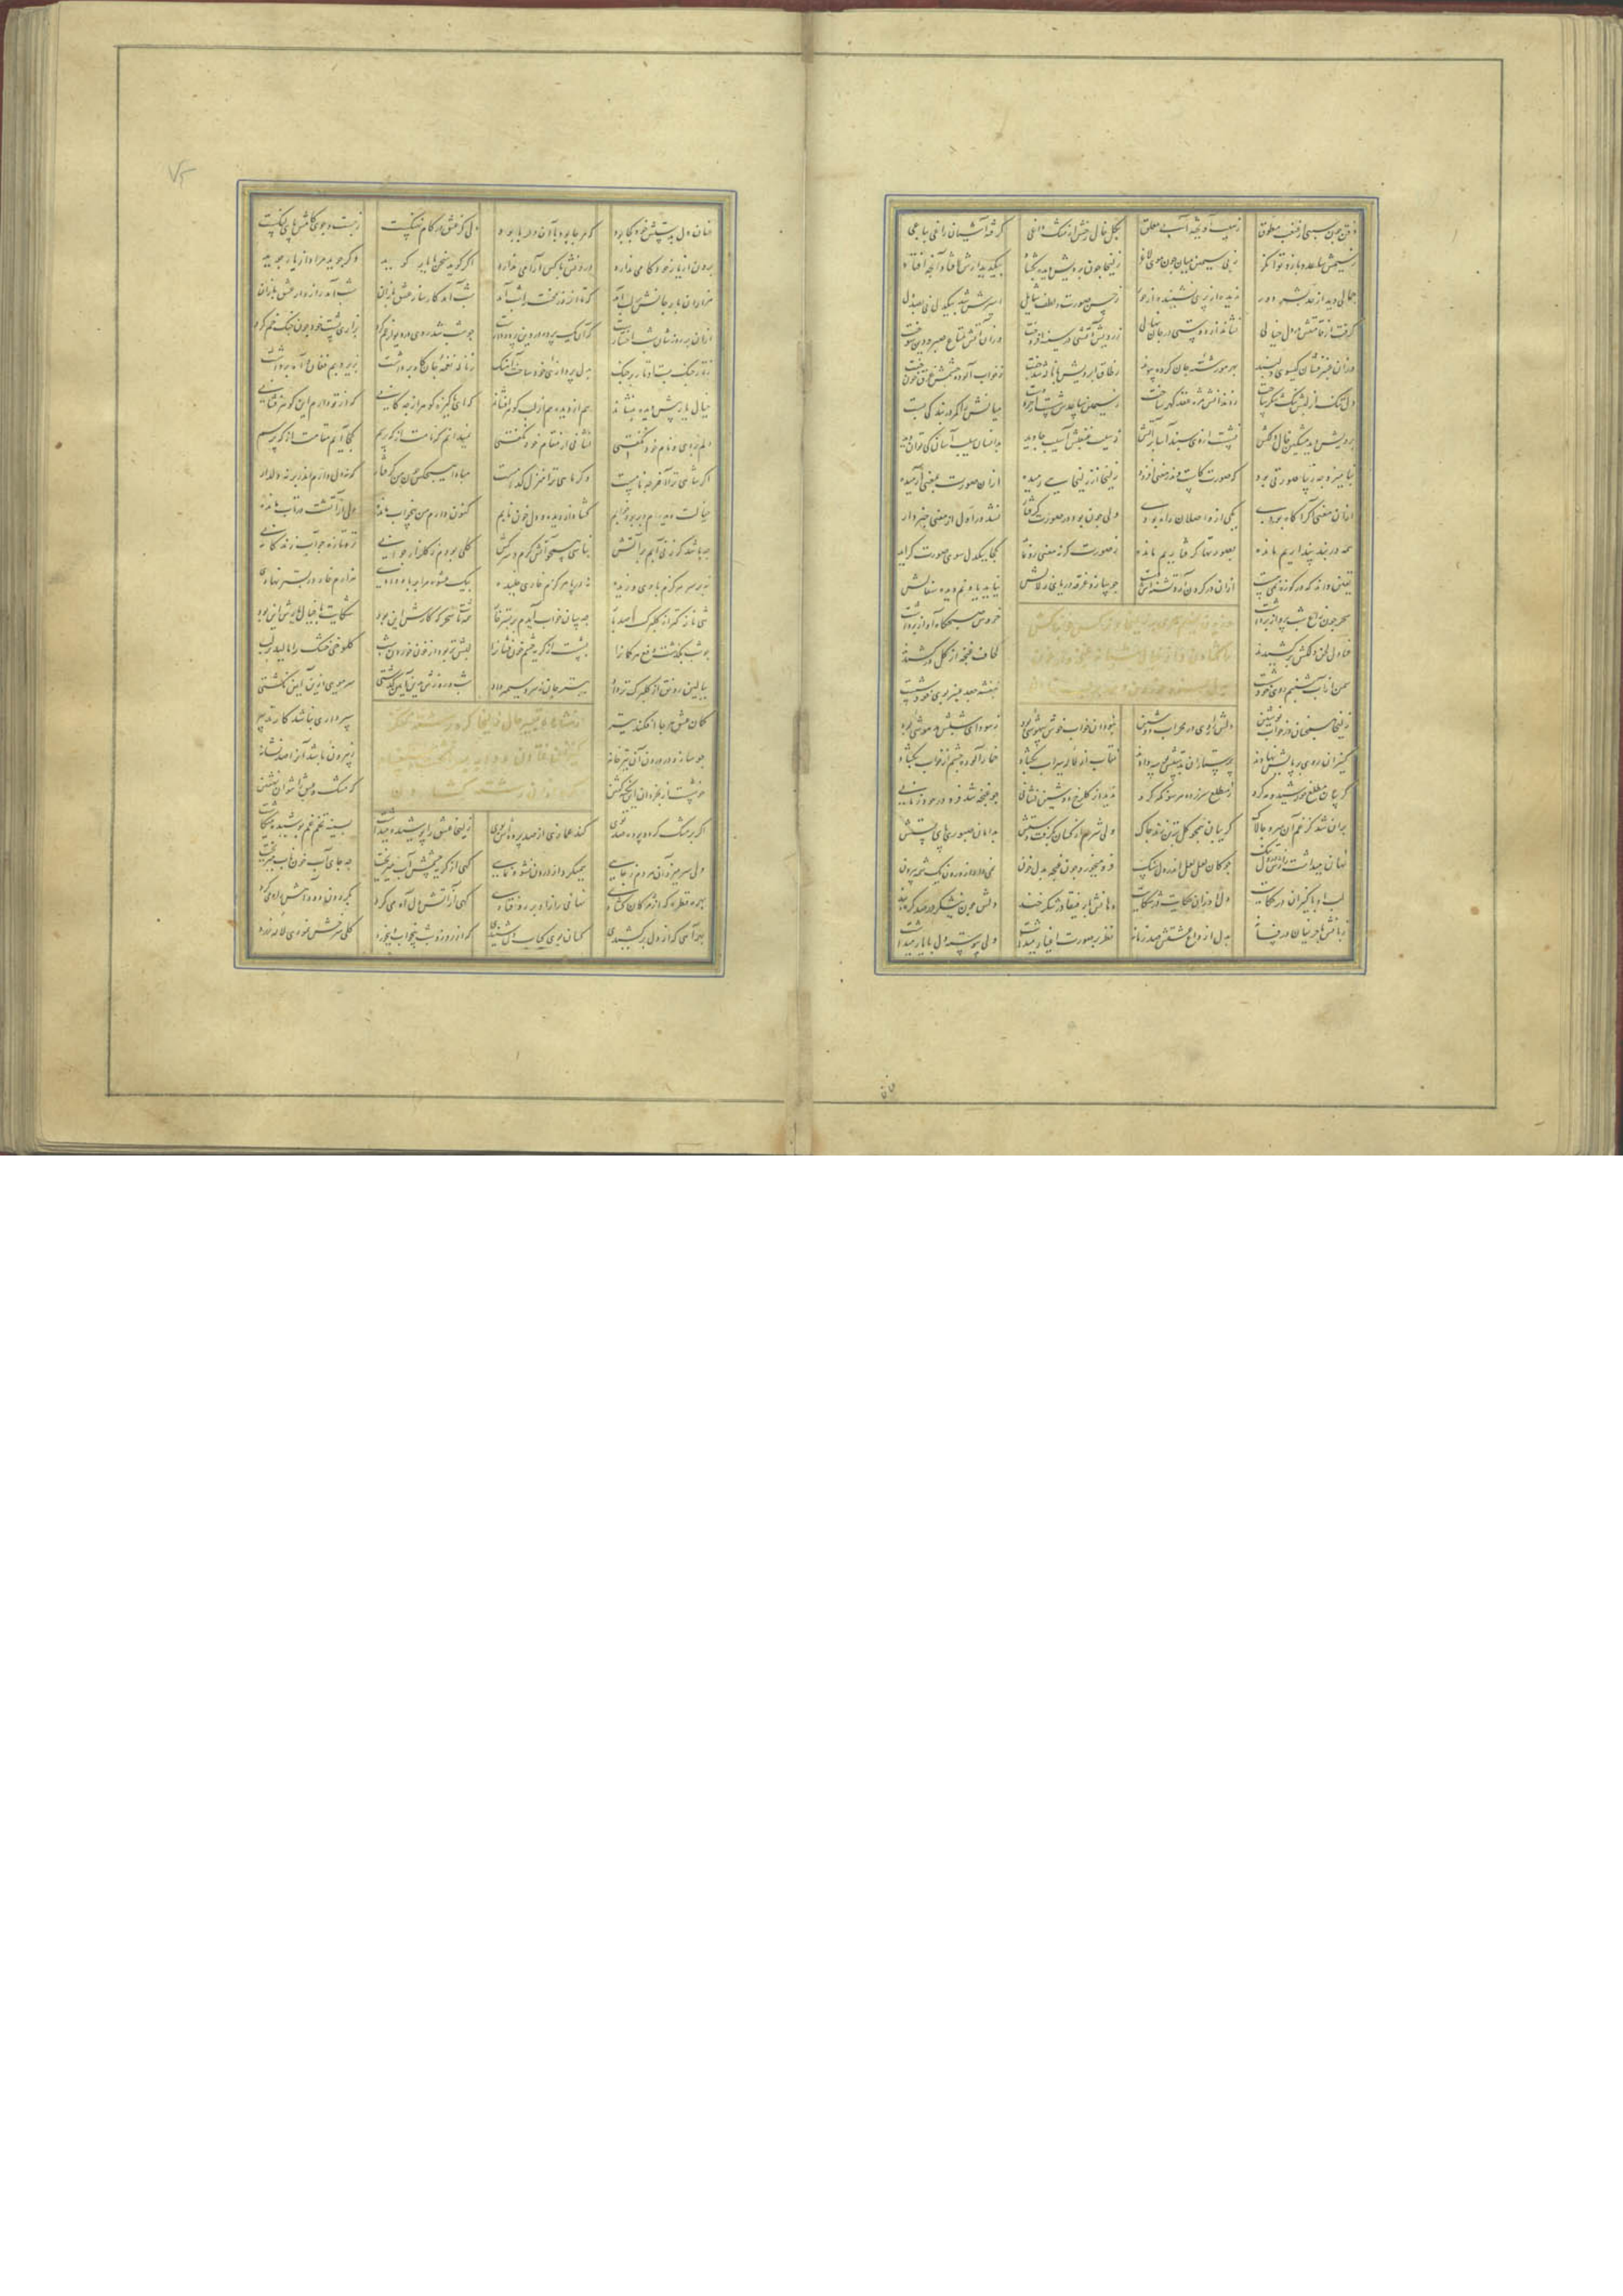 ذقن چون سیبی از غبغب مطوق ز سیب آویخته آبی معلق بگل خالی رخش از مشک داغی گرفته آشیان زاغی بباغی
ز سیمش ساعد و بازو توانگر ز بی سیمی میان چون موی لاغر زلیخا چون برویش دیده بگشاد بیک دیدارش افتاد آنچه افتاد
جمالی دید از حد بشر دور ندیده از پری نشنیده از حور ز حسن صورت و لطف شمایل اسیرش شد بیکدل نی بصد دل
گرفت از قامتش در دل خیالی نشاند از دوستی در جان نهالی ز رویش آتشی در سینه افروخت وزان آتش متاع صبر و دین سوخت
وزان عنبر فشان گیسوی دلبند بهر مو رشته جان کرد پیوند ز طاق ابرویش با ناله شد جفت ز خواب آلوده چشمش غرق خون خفت
دل تنگ از لبش تنگ شکر ساخت ز دندانش مژه عقد گهر ساخت ز سیمین ساعدش شست از خرد دست میانش را کمر در بندگی بست
برویش دید مشکین خال دلکش نشست از وی سپند آسا بر آتش ز سیب غبغبش آسیب جان دید بدانسان سیب آسان کی توان چید
بنامیزد چه زیبا صورتی بود که صورت کاست وندر معنی افزود زلیخا از زلیخایی رمیده ازان صورت بمعنی آرمیده
ازان معنی اگر آگاه بودی یکی از واصلان راه بودی ولی چون بود در صورت گرفتار نشد در اول از معنی خبردار
همه در بند پنداریم مانده بصورتها گرفتاریم مانده ز صورت گر نه معنی رو نماید کجا یکدل سوی صورت گراید
یقین داند که در کوزه نمی هست ازان در گردن آرد تشنه اش دست چو سازد غرقه دریای زلالش نیاید یاد نم دیده سفالش
سحر چون زاغ شب پرواز برداشت خروس صبحگاه آواز برداشت
عنادل لحن دلکش برکشیدند لحاف غنچه از گل درکشیدند
سمن از آب شبنم روی خود شست بنفشه جعد عنبر بوی خود شست
زلیخا همچنان در خواب نوشین دلش را روی در محراب دوشین نبود آن خواب خوش بیهوشی بود ز سودای شبش مدهوشی بود
کنیزان روی بر پایش نهادند پرستاران بدستش بوسه دادند نقاب از لاله سیراب بگشاد خمار آلوده چشم از خواب بگشاد
گریبان مطلع خورشید و مه کرد ز مطلع سر زده هر سو نگه کرد ندید از گلرخ دوشین نشانی چو غنچه شد فرو در خود زمانی
بران شد کز غم آن سرو چالاک گریبان همچو گل بر تن زند چاک ولی شرم از کسان بگرفت دستش بدامان صبوری پای بستش
نهان میداشت رازش در دل تنگ چو کان لعل لعل اندر دل سنگ فرو میخورد چون غنچه بدل خون نمی داد از درون یک شمه بیرون
لب او با کنیزان در حکایت دل او زان حکایت در شکایت دهانش با رفیقان در شکر خند دلش چون نیشکر در صد گره بند
زبانش با حریفان در فسانه بدل از داغ عشقش صد زبانه نظر بر صورت اغیار میداشت ولی پیوسته دل با یار میداشت
۷۵
عنان دل بدستش خود کجا بود که هر جا بود با آن دلربا بود دلی کز عشق در کام نهنگست ز جست و جوی کامش پای لنگست
برون از یار خود کامی ندارد درونش با کس آرامی ندارد اگر گوید سخن با یار گوید وگر جوید مراد از یار جوید
هزاران بار جانش بر لب آمد که تا از روز محنت را شب آمد شب آمد کار ساز عشق بازان شب آمد راز دار عشق بازان
ازان بر روز شان شب اختیارست که آن یک پرده در وین پرده دارست چو شب شد روی در دیوار غم کرد بزاری پشت خود چون چنگ خم کرد
ز تار چنگ بست اوتار بر چنگ بدل پردازی خود ساخت آهنگ ز ناله نغمه جان کاه برداشت بزیر و بم فغان و آه برداشت
خیال یار پیش دیده بنشاند هم از دیده هم از لب گوهر افشاند که ای پاکیزه گوهر از چه کانی که از تو دارم این گوهر فشانی
دلم بردی و نام خود نگفتی نشانی از مقام خود نگفتی نمیدانم که نامت از که پرسم کجا آیم مقامت از که پرسم
اگر شاهی ترا آخر چه نامست وگر ماهی ترا منزل کدامست مبادا هیچکس چون من گرفتار که نه دل دارم اندر بر نه دلدار
خیالت دیدم و بربود خوابم گشاد از دیده و دل خون نابم کنون دارم من بیخواب مانده دلی از آتشت در تاب مانده
چه باشد گر زنی آبم بر آتش نباشی همچو آتش گرم و سرکش گلی بودم ز گلزار جوانی تر و تازه چو آب زندگانی
نه بر سر هرگزم بادی وزیده نه در پا هرگزم خاری خلیده بیک عشوه مرا بر باد دادی هزارم خار در بستر نهادی
تنی نازکتر از گلبرگ صد بار چه سان خواب آیدم بر بستر خار همه شب تا سحرگه کارش این بود شکایت با خیال یارش این بود
چو شب بگذشت دفع هر گمان را بشست از گریه چشم خون فشان را لبش تر بود از خون خوردن شب کلوخی خشک را مالید بر لب
ببالین رونق از گلبرگ تر داد ببستر جان ز سرو سیمبر داد شب و روزش بدین آیین گذشتی سر مویی ازین آیین نگشتی
کمان عشق هر جا افکند تیر سپر داری نباشد کار تدبیر
چو سازد در درون آن تیر خانه ز بیرون باشد آن را صد نشانه
خوشست از بخردان این نکته گفتن که مشک و عشق را نتوان نهفتن
اگر بر مشک گردد پرده صد توی کند غمازی از صد پرده اش بوی زلیخا عشق را پوشیده میداشت بسینه تخم غم پوشیده میکاشت
ولی سر میزد آن هر دم ز جایی همیکرد از درون نشو و نمایی گهی از گریه چشمش آب میریخت چه جای آب خون ناب میریخت
بهر قطره که از مژگان گشادی نهانی راز او بر رو فتادی گهی از آتش دل آه میکرد بگردون دود آهش راه میکرد
بهر آهی که از دل برکشیدی کسان بوی کباب دل شنیدی که از روز و شب بیخواب و بیخورد